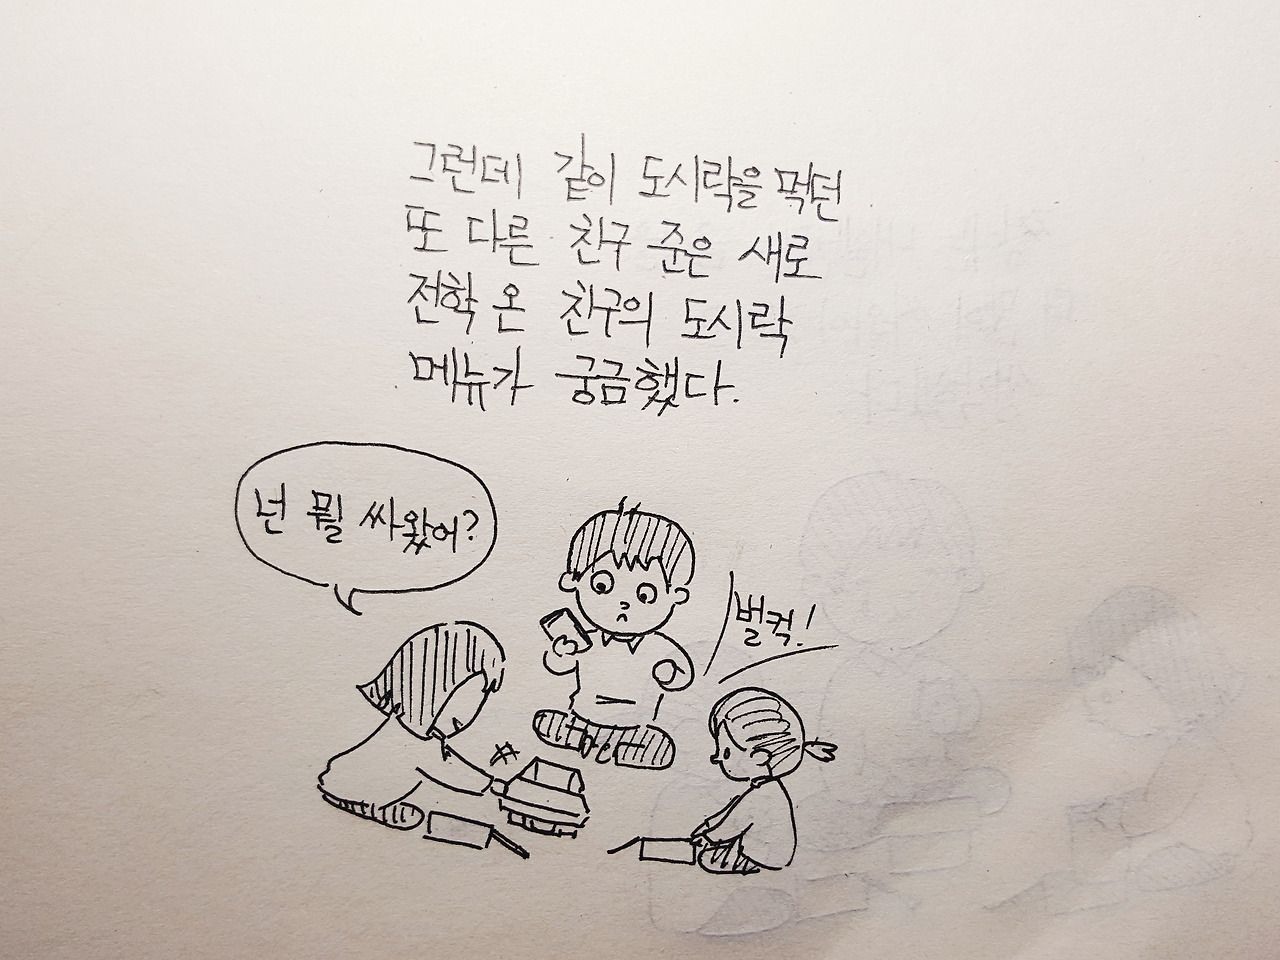 그런데 같이 도시락을 먹던
또 다른 친구 준은 새로
전학 온 친구의 도시락
메뉴가 궁금했다.
넌 뭘 싸왔어?
벌컥!